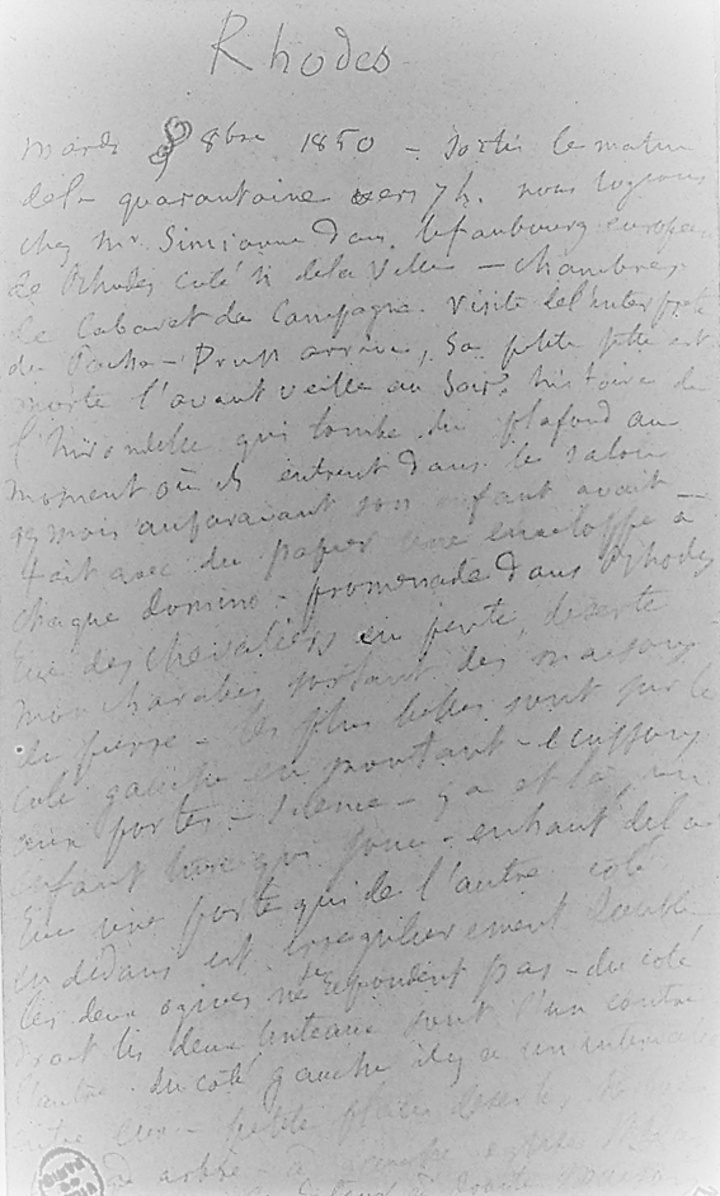 Rhodes
Mardi 8 8bre 1850 – Sortis le matin
de la quarantaine vers 7 h. nous logeons
chez Mr. Simianne dans le faubourg européen
de Rhodes coté N de la Ville – chambres
de Cabaret de Campagne. visite de l'interprète
du Pacha – Pruss arrive, Sa petite fille est
morte l'avant veille au soir. histoire de
l'hirondelle qui tombe du plafond au
moment où ils entrent dans le salon
mois auparavant son enfant avait
fait avec du papier une enveloppe à
chaque domino – promenade dans Rhodes
Rue des Chevaliers en pente, déserte
moucharabis sortant des maisons
de pierre – les plus belles sont sur le
coté gauche en montant – écussons
aux portes – Silence – ça et là, un
enfant turc qui joue – en haut de la
Rue une porte qui de l'autre coté
en dedans est irrégulièrement double
les deux ogives ne se répondent pas – du coté
droit les deux linteaux sont l'un contre
l'autre – du coté gauche il y a un intervalle
entre eux – petite place déserte
arbre – à église